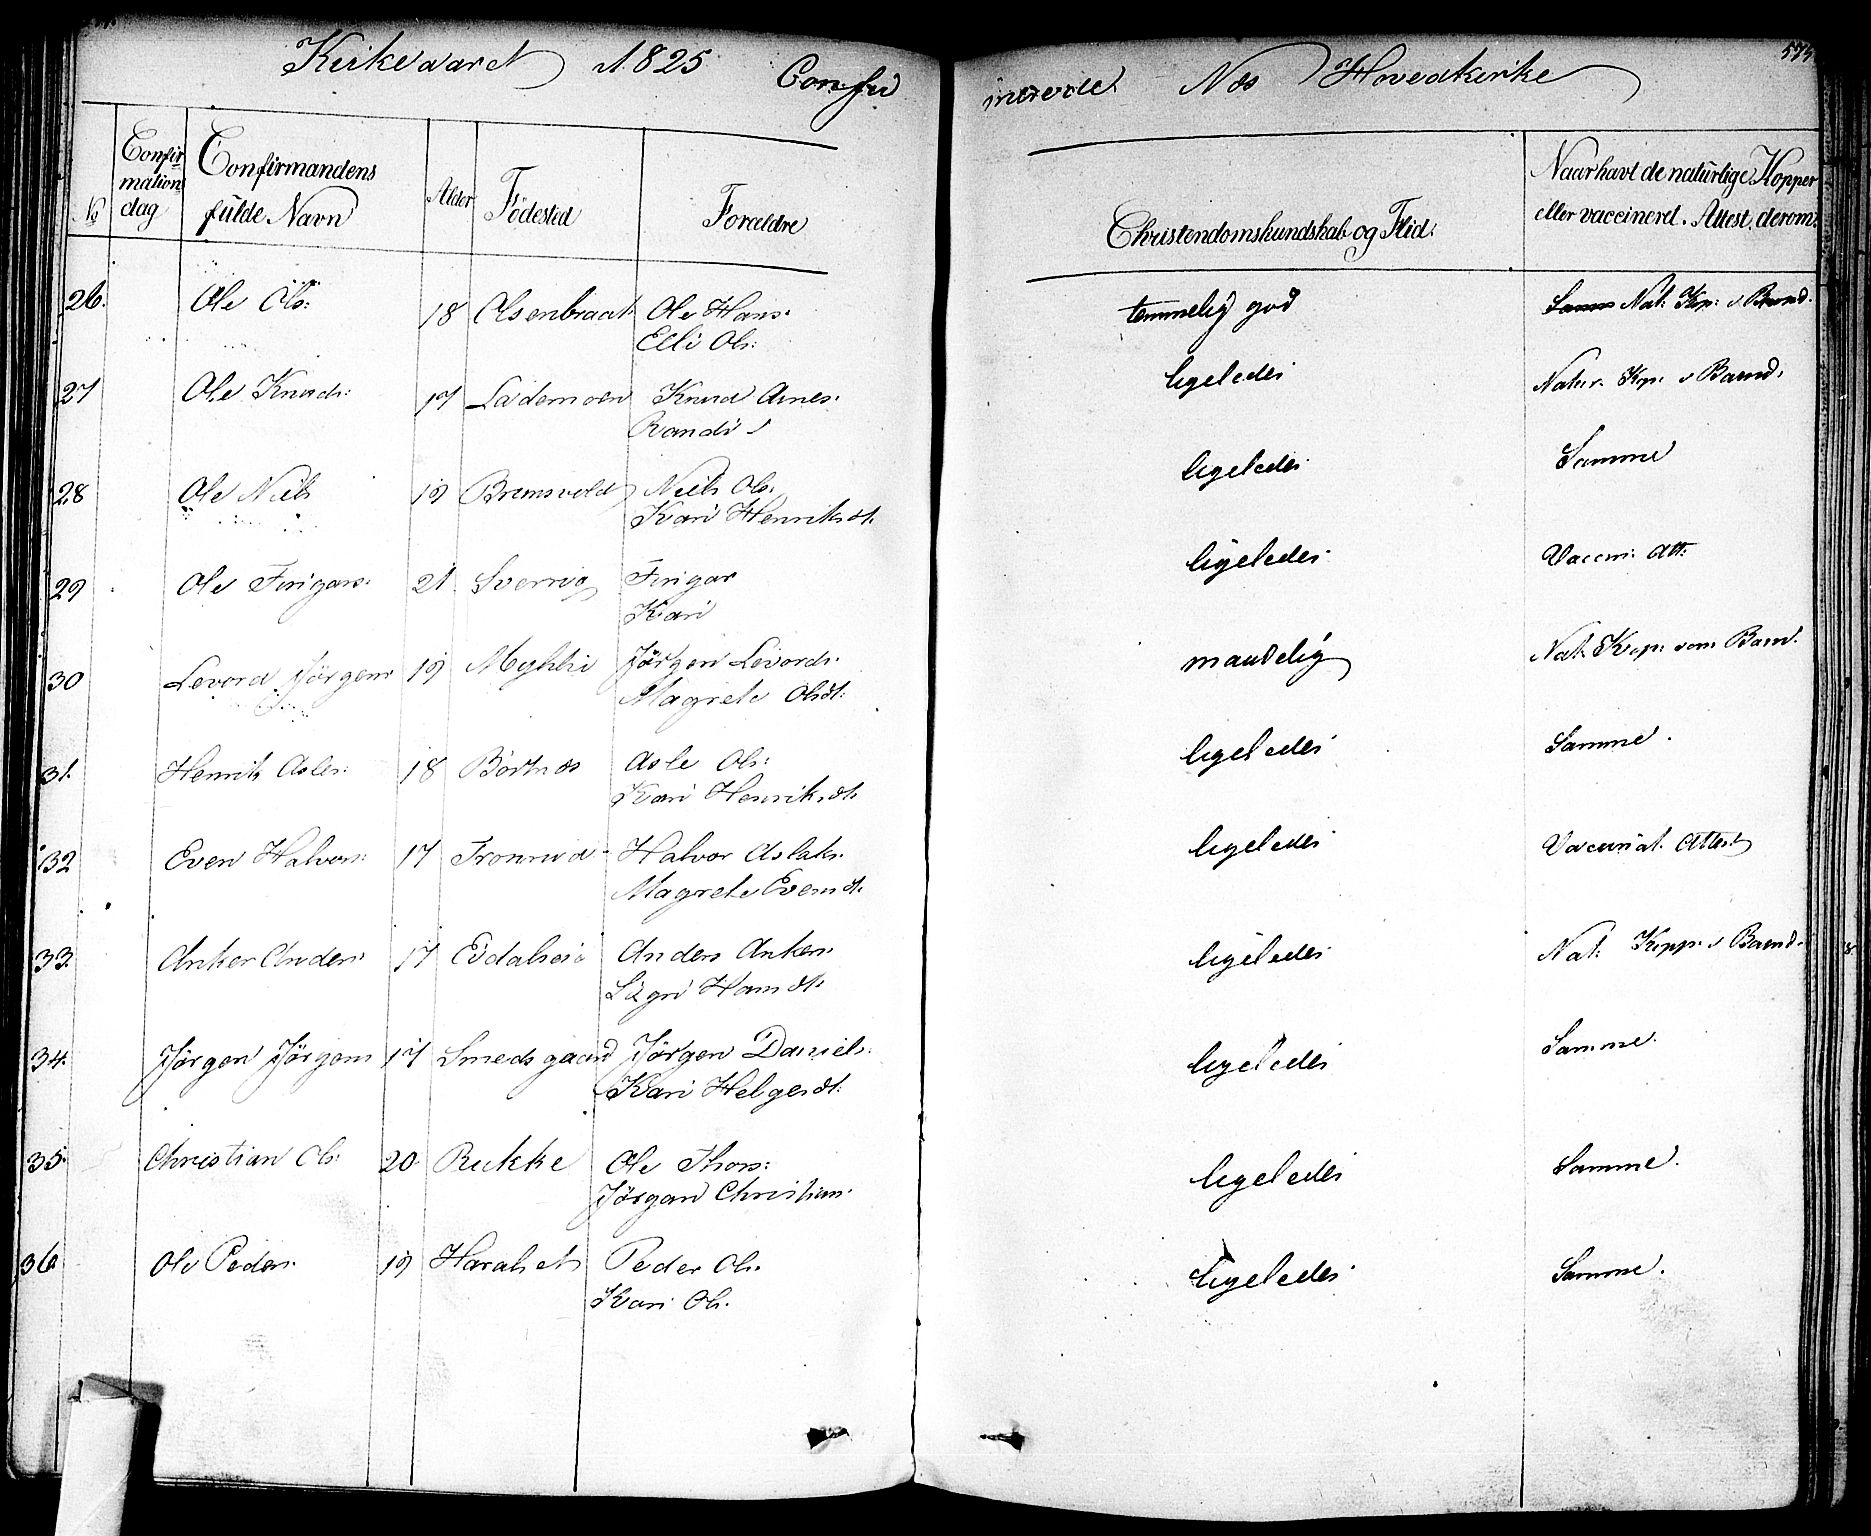 Kirkeaaret 1825 Confir
merede Næs Hovedkirke
575
No
Confir
mations
dag
Confirmandens
fulde Navn
Alder
Födested
Forældre
Christendomskundskab og Flid:
Naar havt de naturlige Kopper
eller vaccinerd. Attest. derom:
26. Ole Ols: 18 Olsenbraat Ole Hans: temmelig god Nat: Kop: s Barnd.
Elli Ols:
27 Ole Knuds: 17 Lademoen Knud Arnes: ligeledes Natur. Kop: s Barnd.
Randi
28 Ole Niels 19 Bremsvold Niels Ols: ligeledes Samme
Kari Henriksdt.
29 Ole Fingars: 21 Sverrig Fingar ligeledes Vaccin: Att:
Kari
30 Levord Jörgens 19 Myhlie Jörgen Levords: maadelig Nat. Kop: som Barn.
Magrete Olsdt:
31. Henrik Asles: 18 Börtnes Asle Ols: ligeledes Samme.
Kari Henriksdt.
32 Even Halvors: 17 Tronrud Halvor Aslaks. ligeledes Vaccinat. Attest
Magrete Evensdt.
33. Anker Anders: 17 Eidalseie Anders Ankers: ligeledes Nat: Kopp: s Barnd.
Sigri Hansdt:
34. Jörgen Jörgens 17 Smedsgaard Jörgen Daniels: ligeledes Samme.
Kari Helgesdt:
35. Christian Ols: 20 Rukke Ole Thors: ligeledes Samme.
Jörgan Christian.
36 Ole Peders. 19 Haralset Peder Ols. ligeledes Samme.
Kari Ols.